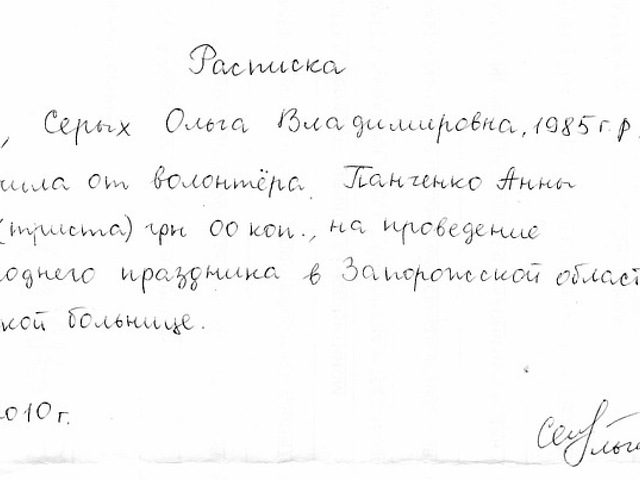 Расписка
, Серых Ольга Владимировна, 1985 г.р.
чила от волонтёра Панченко Анны
(триста) грн 00 коп., на проведение
однего праздника в Запорожской област
кой больнице.
010 г.